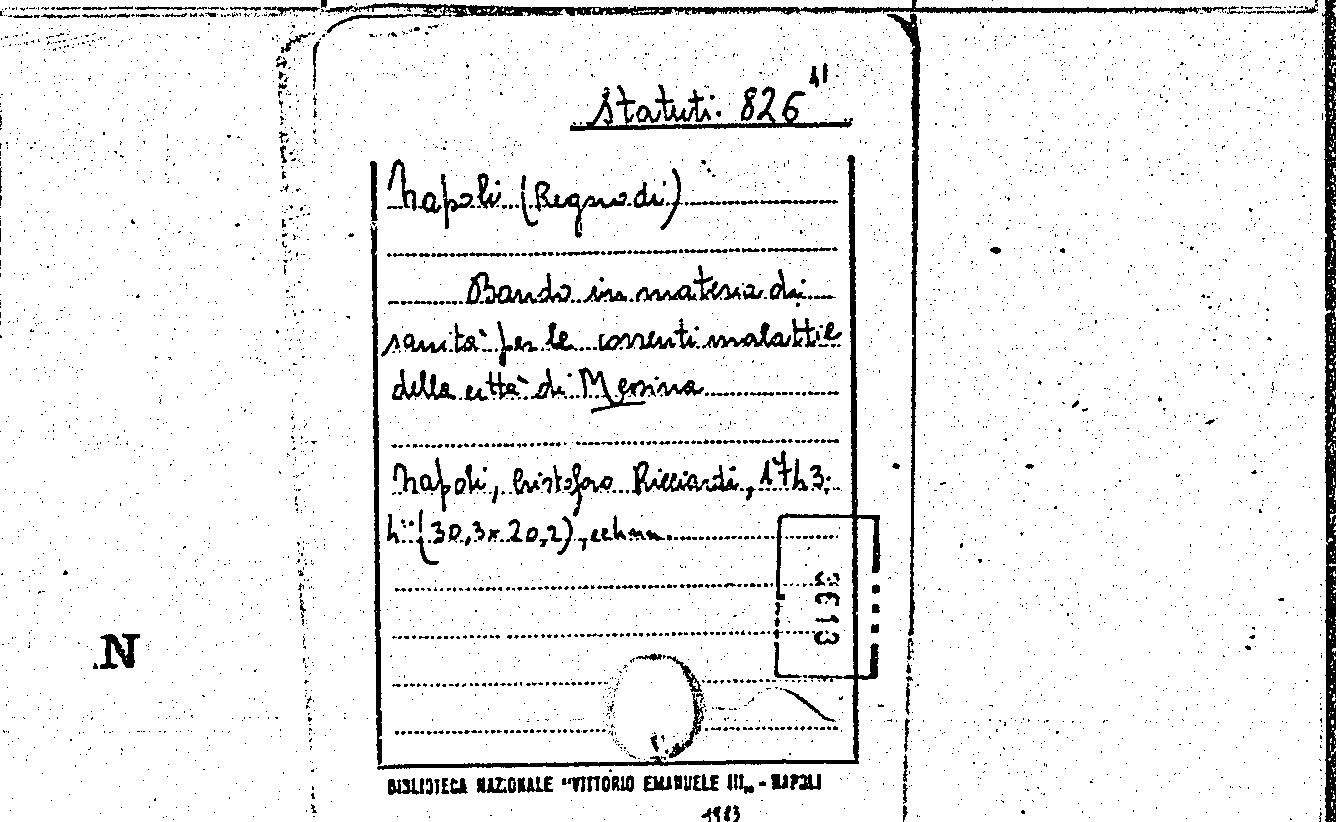 Statuti. 826 41
Napoli (Regno di)
Bando in materia di
sanità per le correnti malattie
della città di Messina
Napoli, Cristoforo Ricciardi, 1743.
4° (30,3x20,2)
3613
N
BIBLIOTECA NAZIONALE "VITTORIO EMANUELE III„ - NAPOLI
1983